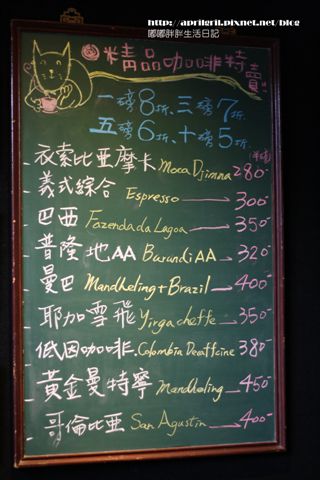 http://aprilgril.pixnet.net/blog
嘟嘟胖胖生活日記
精品咖啡特賣!!
一磅8折、三磅7折
五磅6折、十磅5折
衣索比亞摩卡 Moca Djimma 280
義式綜合 Espresso — 300
巴西 Fazenda da Lagoa — 350
普隆地AA Burundi AA — 320
曼巴 Mandheling + Brazil — 400
耶加雪飛 Yirgacheffe — 350
低因咖啡 Colombia Decaffeine 380
黃金曼特寧 Mandheling — 450
哥倫比亞 San Agustin — 400